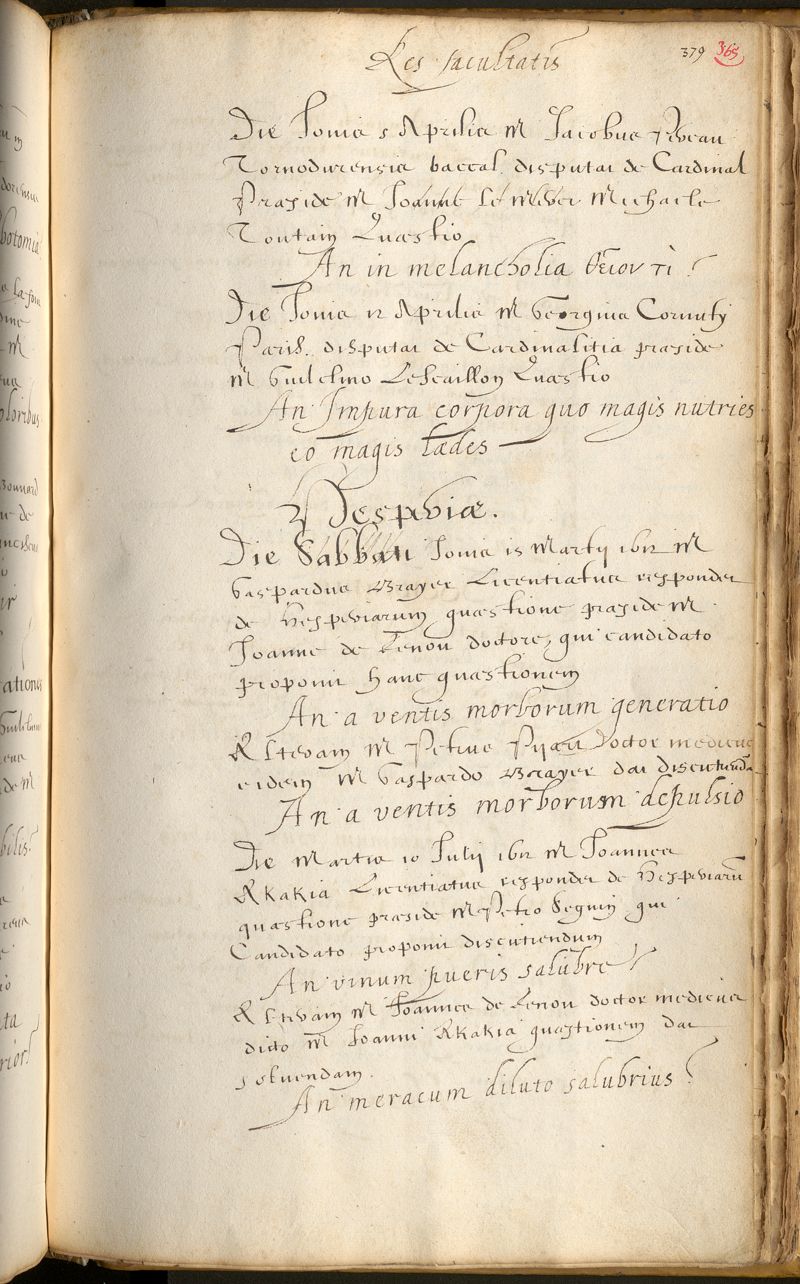 Res facultatis
379 365
Die Jouis 5 Aprilis M Jacobus
Tornodurensis baccal. disputat de Cardinal
Præside M Joanne Michaele
Toutain Quæstio
An in melancholia θεῖον τὶ ?
Die Jouis 12 Aprilis M Georgius Cornuty
Paris. disputat de Cardinalitia præside
M Guilelmo Lescaillon Quæstio
An Impura corpora quo magis nutries
eo magis lædes
Vesperiæ.
Die Sabbati Jouis 15 Martij 1612 M
Gaspardus Brayer Licentiatus respondet
de Vesperiarum quæstione præside M
Joanne de Lenou doctore, qui candidato
proponit hanc quæstionem
An a ventis morborum generatio
Alteram M Petrus Pijart Doctor medicus
eidem M Gaspardo Brayer dat discutiendā
An a ventis morborum depulsio
Die Martis 10 Julij 1612 M Joannes
Akakia Licentiatus respondet de Vesperiarū
quæstione præside M Petro Seguin qui
Candidato proponit discutiendum
An vinum pueris salubre ?
Alteram M Joannes de Lenou doctor medicus
dicto M Joanni Akakia quæstionem dat
soluendam.
An meracum diluto salubrius ?